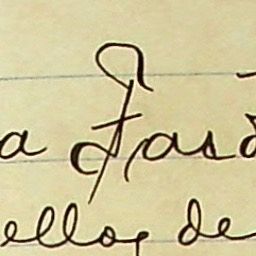 a Fas
ellos de